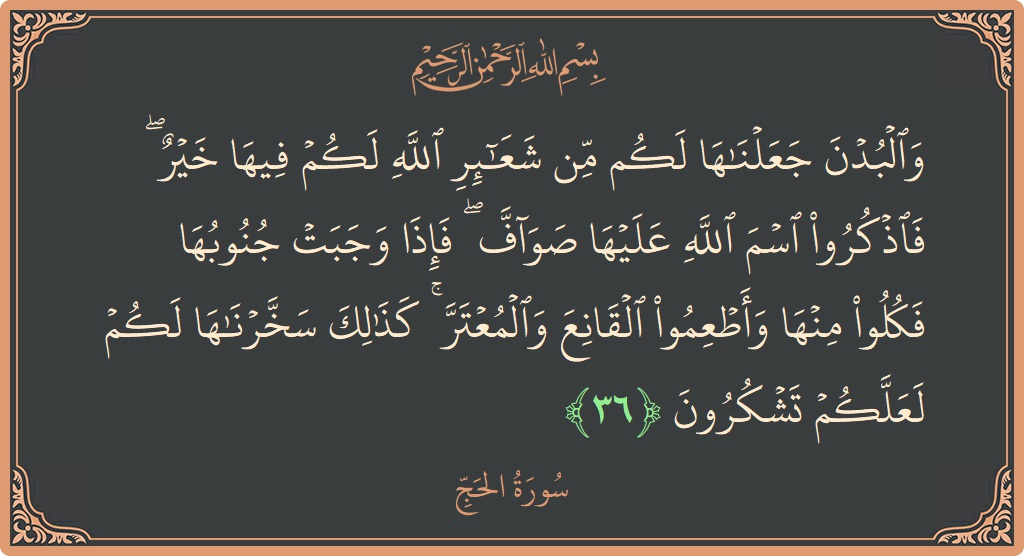 بِسْمِ اللهِ الرَّحْمٰنِ الرَّحِيْمِ
وَٱلۡبُدۡنَ جَعَلۡنَـٰهَا لَكُم مِّن شَعَـٰٓئِرِ ٱللَّهِ لَكُمۡ فِيهَا خَيۡرٌۖ
فَٱذۡكُرُواْ ٱسۡمَ ٱللَّهِ عَلَيۡهَا صَوَآفَّۖ فَإِذَا وَجَبَتۡ جُنُوبُهَا
فَكُلُواْ مِنۡهَا وَأَطۡعِمُواْ ٱلۡقَانِعَ وَٱلۡمُعۡتَرَّۚ كَذَٰلِكَ سَخَّرۡنَـٰهَا لَكُمۡ
لَعَلَّكُمۡ تَشۡكُرُونَ ﴿٣٦﴾
سُورَةُ الحَجِّ